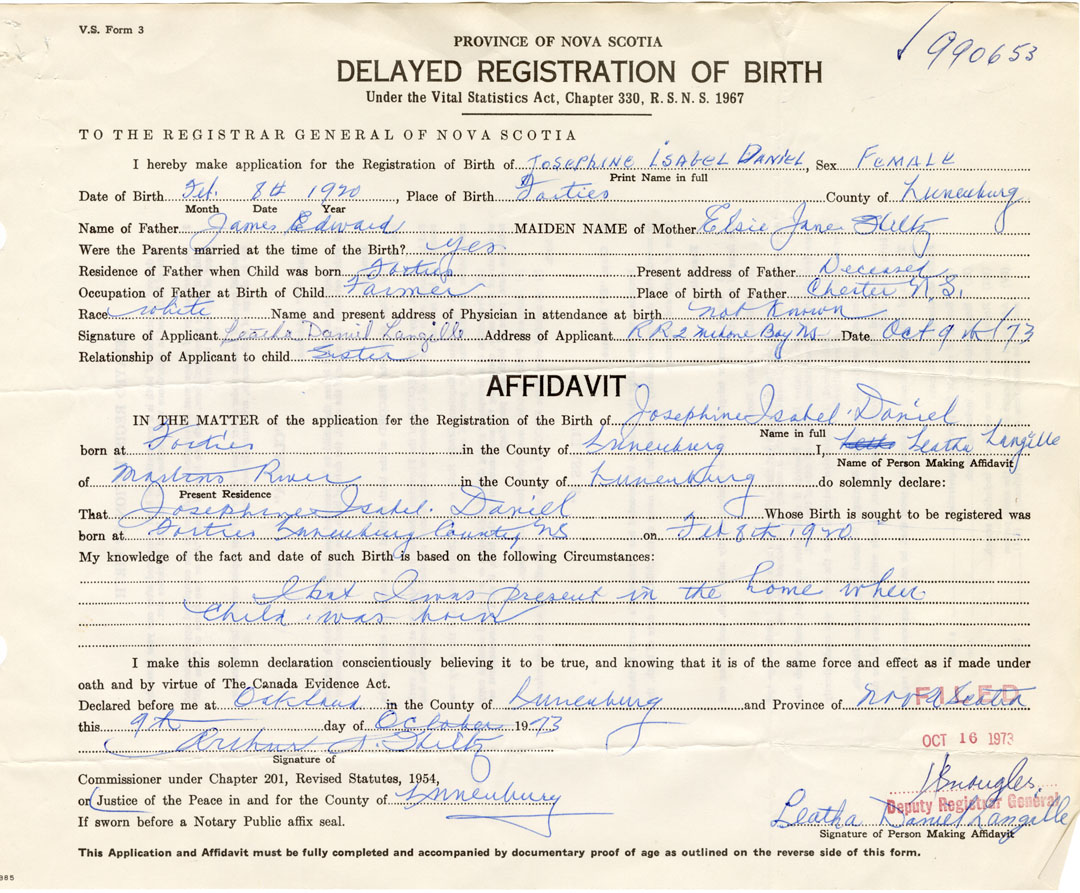 V.S. Form 3
990653
PROVINCE OF NOVA SCOTIA
DELAYED REGISTRATION OF BIRTH
Under the Vital Statistics Act, Chapter 330, R. S. N. S. 1967
TO THE REGISTRAR GENERAL OF NOVA SCOTIA
I hereby make application for the Registration of Birth of JOSEPHINE ISABEL DANIEL, Sex FEMALE
Print Name in full
Date of Birth Feb. 8th 1920, Place of Birth Forties County of Lunenburg
Month Date Year
Name of Father James Edward MAIDEN NAME of Mother Elsie Jane Hiltz
Were the Parents married at the time of the Birth? yes
Residence of Father when Child was born Forties Present address of Father Deceased
Occupation of Father at Birth of Child Farmer Place of birth of Father Chester N.S.
Race white Name and present address of Physician in attendance at birth not Known
Signature of Applicant Leatha Daniel Langille Address of Applicant RR2 Mahone Bay NS Date Oct 9th /73
Relationship of Applicant to child Sister
AFFIDAVIT
IN THE MATTER of the application for the Registration of the Birth of Josephine Isabel Daniel
Name in full
born at Forties in the County of Lunenburg I, Leatha Langille
Name of Person Making Affidavit
of Martins River in the County of Lunenburg do solemnly declare:
Present Residence
That Josephine Isabel Daniel Whose Birth is sought to be registered was
born at Forties Lunenburg County, NS on Feb 8th 1920
My knowledge of the fact and date of such Birth is based on the following Circumstances:
That I was present in the home when
Child was born
I make this solemn declaration conscientiously believing it to be true, and knowing that it is of the same force and effect as if made under
oath and by virtue of The Canada Evidence Act.
Declared before me at Oakland in the County of Lunenburg and Province of Nova Scotia
FILED
this 9th day of October 1973
OCT 16 1973
Arthur Hiltz
Signature of
Commissioner under Chapter 201, Revised Statutes, 1954,
or (Justice of the Peace in and for the County of Lunenburg
Deputy Registrar General
If sworn before a Notary Public affix seal.
Leatha Daniel Langille
Signature of Person Making Affidavit
This Application and Affidavit must be fully completed and accompanied by documentary proof of age as outlined on the reverse side of this form.